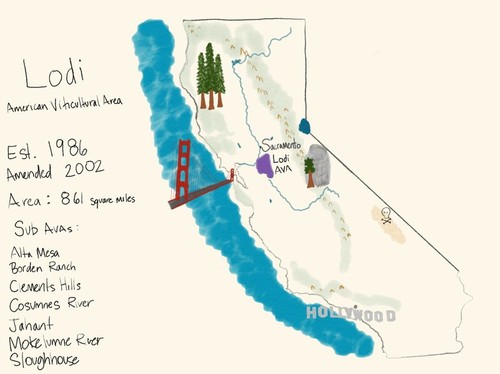 Lodi
American Viticultural Area
Est. 1986
Amended 2002
Area: 861 square miles
Sub AVAs:
Alta Mesa
Borden Ranch
Clements Hills
Cosumnes River
Jahant
Mokelumne River
Sloughhouse
Sacramento
Lodi
AVA
HOLLYWOOD